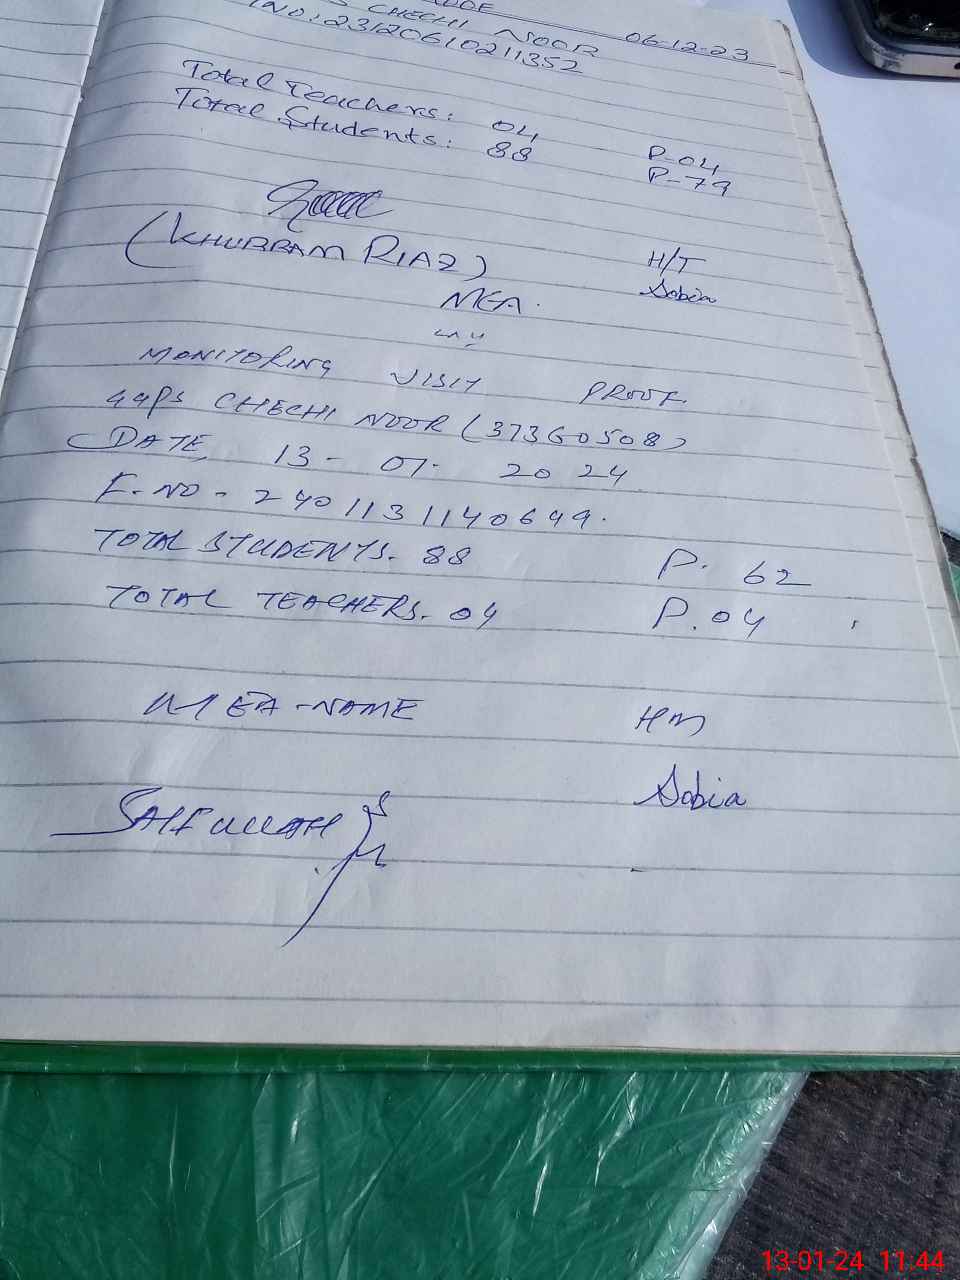 CHECHI NOOR 06-12-23
NO: 23120610211352
Total Teachers: 04 P-04
Total Students: 88 P-79
(KHURRAM RIAZ) H/T
MEA. Sobia
MONITORING VISIT PROOF.
GGPS CHECHI NOOR (37360508)
DATE, 13-01-2024
F-NO-2401131140699.
TOTAL STUDENTS. 88 P. 62
TOTAL TEACHERS. 04 P. 04
MEA-NAME HM
SAIFULLAH Sobia
13-01-24 11:44